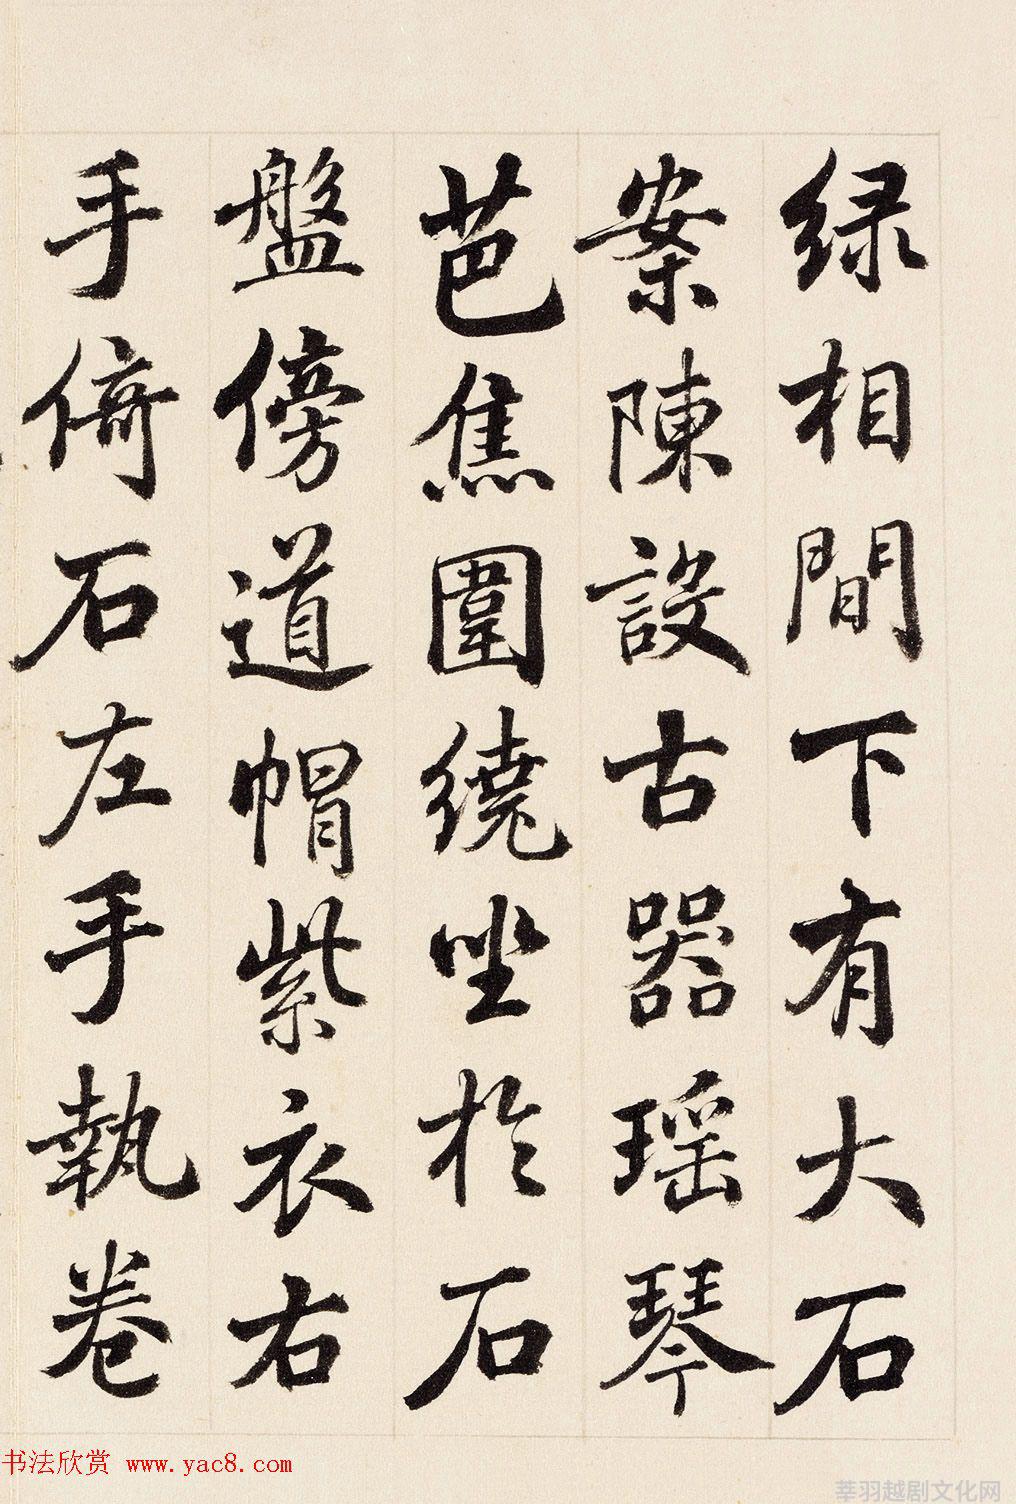 绿相間下有大石
案陳設古器瑶琴
芭焦圍繞坐於石
盤傍道帽紫衣右
手倚石左手執卷
书法欣赏 www.yac8.com
莘羽越剧文化网